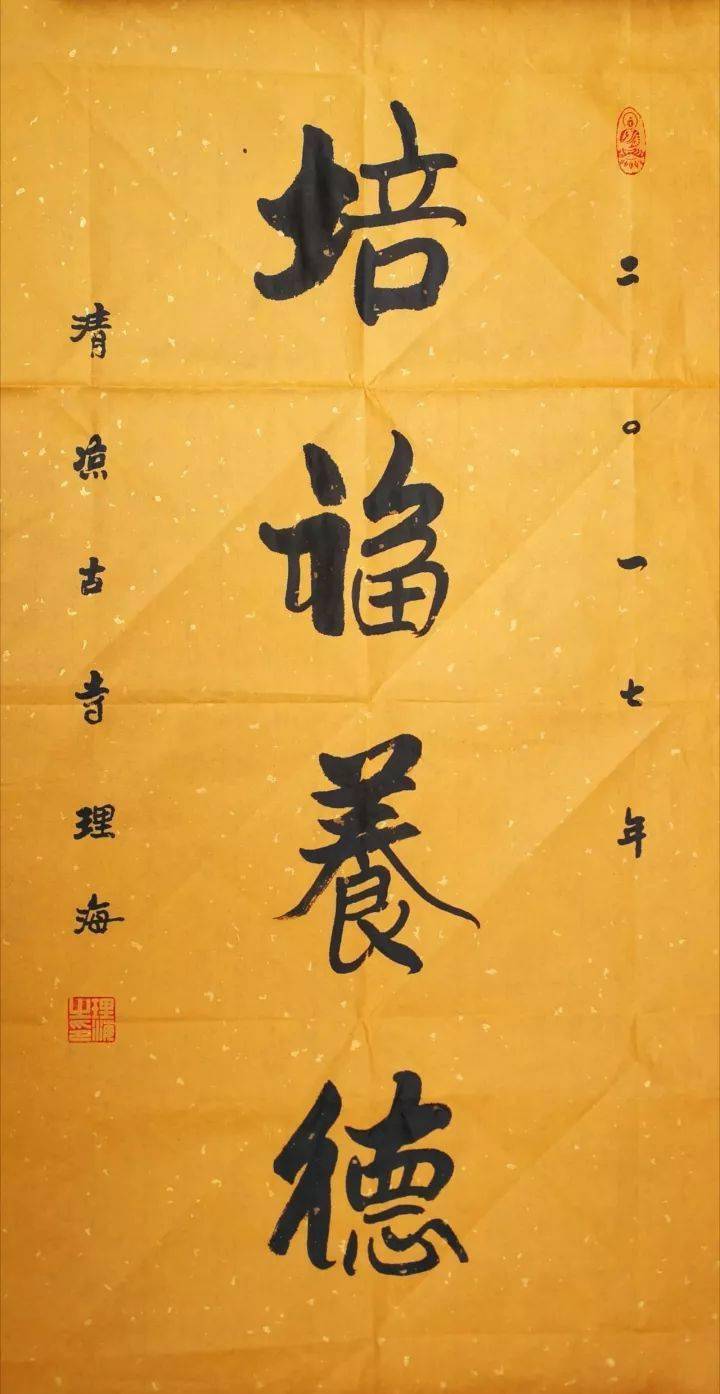 二〇一七年
培福養德
清凉古寺理海
理海之印